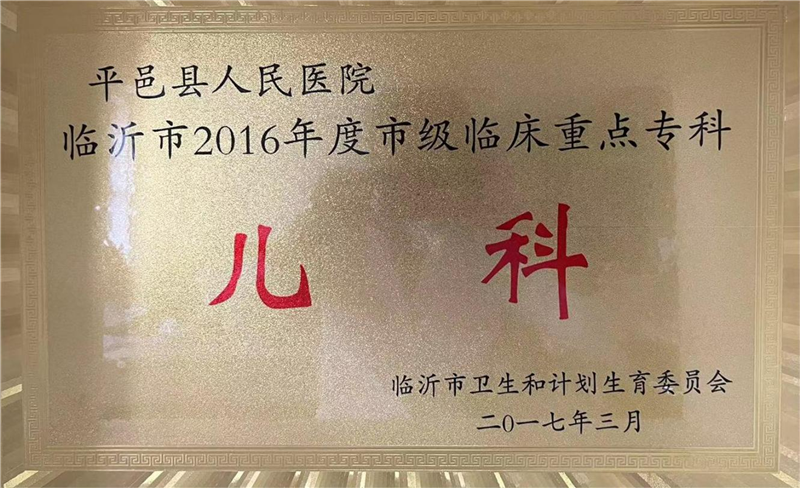 平邑县人民医院
临沂市2016年度市级临床重点专科
儿科
临沂市卫生和计划生育委员会
二〇一七年三月